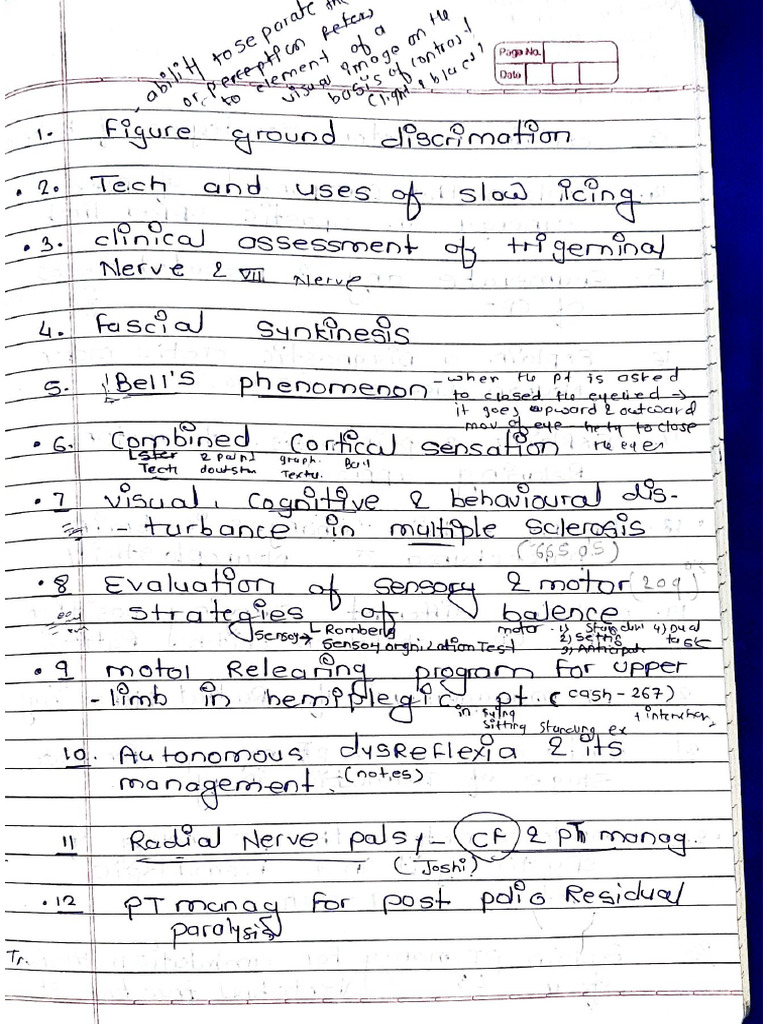 ability to separate the
or perception refers
to element of a
visual image on the
basis of contrast
(light & black)
Page No.
Date
1. Figure ground discrimation
2. Tech and uses of slow icing
3. clinical assessment of trigeminal
Nerve & VII Nerve.
4. Fascial Synkinesis
5. Bell's phenomenon - when the pt is asked
to closed the eyelied →
it goes upward & outward
mov of eye
to close
6. Combined Cortical sensation the eyes
2 point graph.
Tech
7 visual, cognitive & behavioural dis-
- turbance in multiple sclerosis
8 Evaluation of sensory & motor (209)
strategies of balence
sensory → Romberg
sensory orgnization Test
motor 1)
4) Dual
2) setting task
3) Anticipat
9 motor Relearing program for upper
- limb in hemiplegic pt. (cash - 267)
in
sitting standing ex
10. Autonomous dysReflexia & its
management. (notes)
11 Radial Nerve palsy - CF & PT manag.
(Joshi)
12 PT manag for post polio Residual
paralysis
Tr.